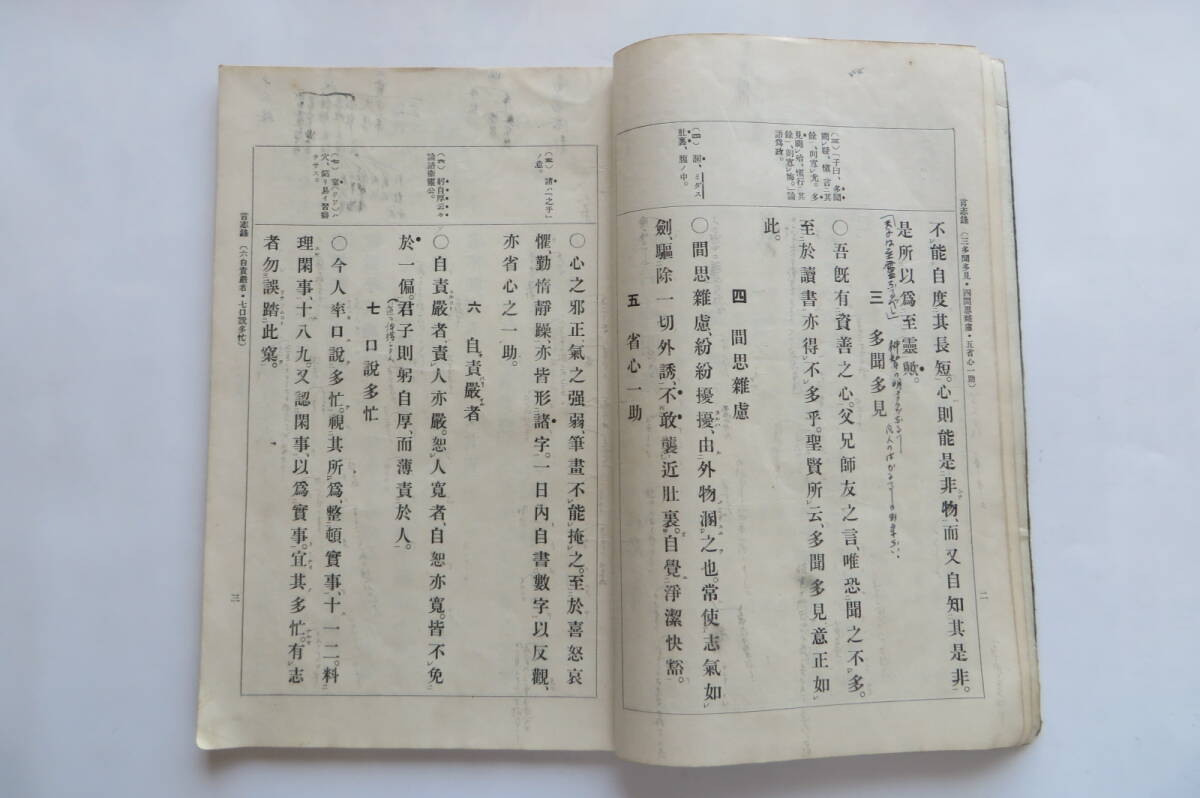 言志錄（三多聞多見・四間思雜慮・五省心一助）
二
（三）子曰、多聞
闕レ疑、愼言二其
餘一、則寡レ尤。多
見闕レ殆、愼行二其
餘一、則寡レ悔。「論
語爲政。
（四）溷、ミダス
肚裏、腹ノ中。
不能自度其長短。心則能是非物、而又自知其是非。
是所以爲至靈歟。
三　多聞多見
〇吾旣有資善之心。父兄師友之言、唯恐聞之不多。
至於讀書亦得不多乎。聖賢所云、多聞多見意正如
此。
四　間思雜慮
〇間思雜慮、紛紛擾擾、由外物溷之也。常使志氣如
劍、驅除一切外誘、不敢襲近肚裏。自覺淨潔快豁。
五　省心一助
（五）諸ハ「之乎」
ノ意。
（六）躬自厚云々
論語衞靈公。
（七）窠（クワ）ハ
穴、陷リ易イ習癖
ヲサス。
〇心之邪正、氣之强弱、筆畫不能掩之。至於喜怒哀
懼、勤惰靜躁、亦皆形諸字。一日內、自書數字、以反觀、
亦省心之一助。
六　自責嚴者
〇自責嚴者、責人亦嚴。恕人寬者、自恕亦寬。皆不免
於一偏。君子則躬自厚、而薄責於人。
七　口說多忙
〇今人率口說多忙。視其所爲、整頓實事、十一二。料
理閑事、十八九。又認閑事、以爲實事。宜其多忙。有志
者勿誤踏此窠。
言志錄（六自責嚴者・七口說多忙）
三